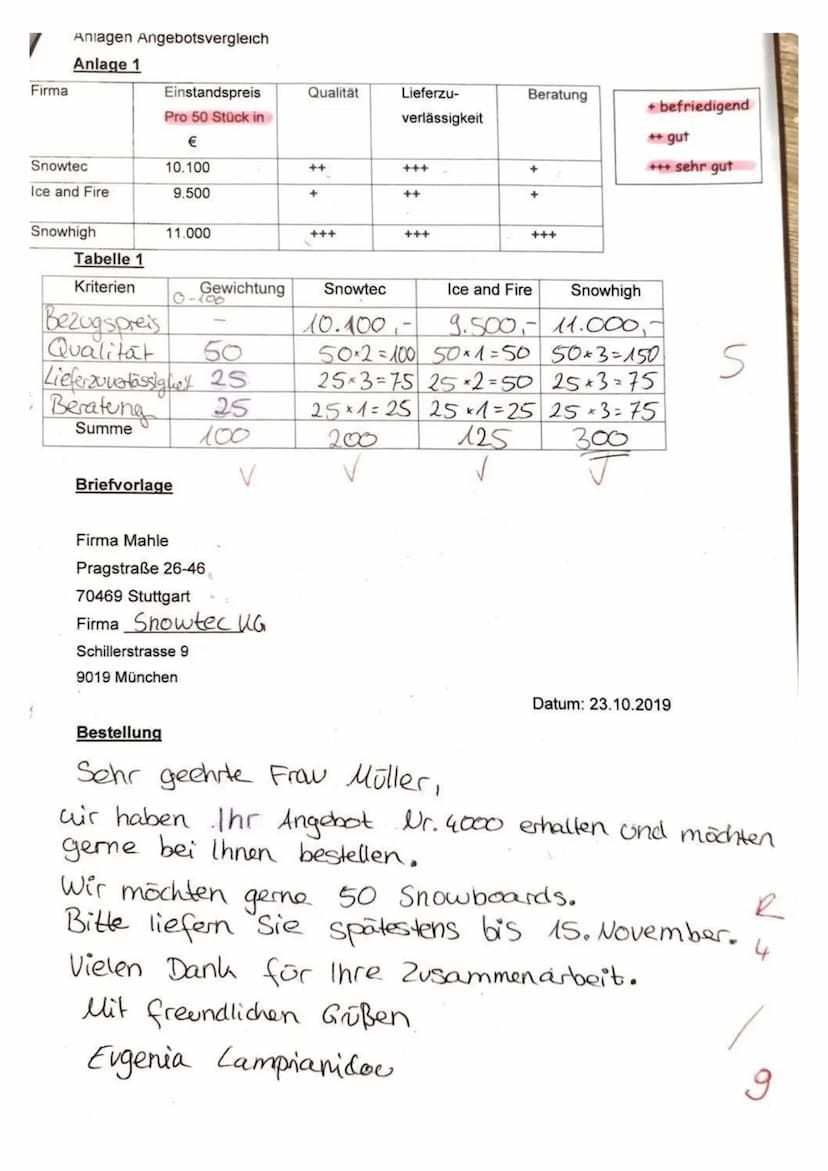 Anlagen Angebotsvergleich
Anlage 1
Firma Einstandspreis Qualität Lieferzu- Beratung
Pro 50 Stück in verlässigkeit
€
+ befriedigend
++ gut
+++ sehr gut
Snowtec 10.100 ++ +++ +
Ice and Fire 9.500 + ++ +
Snowhigh 11.000 +++ +++ +++
Tabelle 1
Kriterien Gewichtung Snowtec Ice and Fire Snowhigh
0-100
Bezugspreis – 10.100,- 9.500,- 11.000,-
Qualität 50 50*2=100 50*1=50 50*3=150
Lieferzuverlässigkeit 25 25*3=75 25*2=50 25*3=75
Beratung 25 25*1=25 25*1=25 25*3=75
Summe 100 200 125 300
5
Briefvorlage
Firma Mahle
Pragstraße 26-46
70469 Stuttgart
Firma Snowtec KG
Schillerstrasse 9
9019 München
Datum: 23.10.2019
Bestellung
Sehr geehrte Frau Müller,
wir haben Ihr Angebot Nr. 4000 erhalten und möchten
gerne bei Ihnen bestellen.
Wir möchten gerne 50 Snowboards.
R
Bitte liefern Sie spätestens bis 15. November.
4
Vielen Dank für Ihre Zusammenarbeit.
Mit freundlichen Grüßen
Evgenia Lampianidou
9